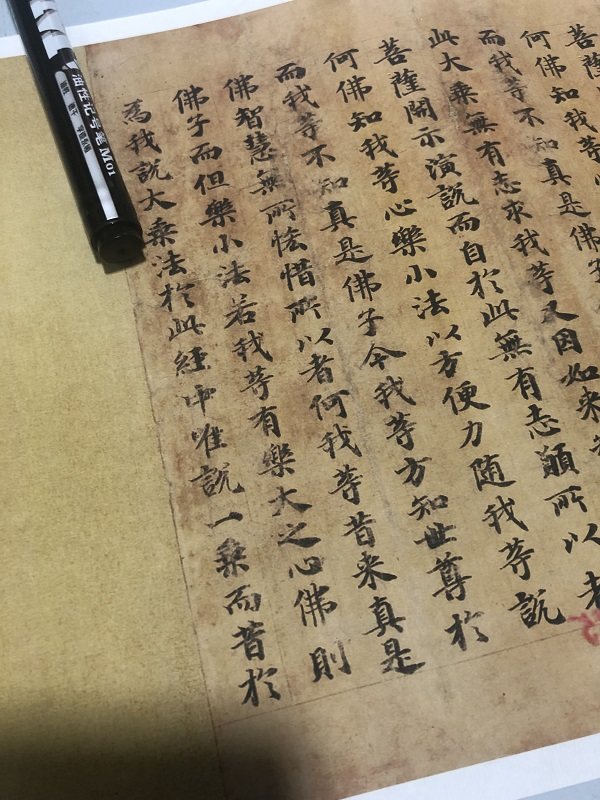 菩薩
何佛知我等心
而我等不知真是佛子
此大乘無有志求我等又因如來智
菩薩開示演說而自於此無有志願所以者
何佛知我等心樂小法以方便力隨我等說
而我等不知真是佛子今我等方知世尊於
佛智慧無所恡惜所以者何我等昔来真是
佛子而但樂小法若我等有樂大之心佛則
為我說大乘法於此經中唯說一乘而昔於
油性记号笔 M01